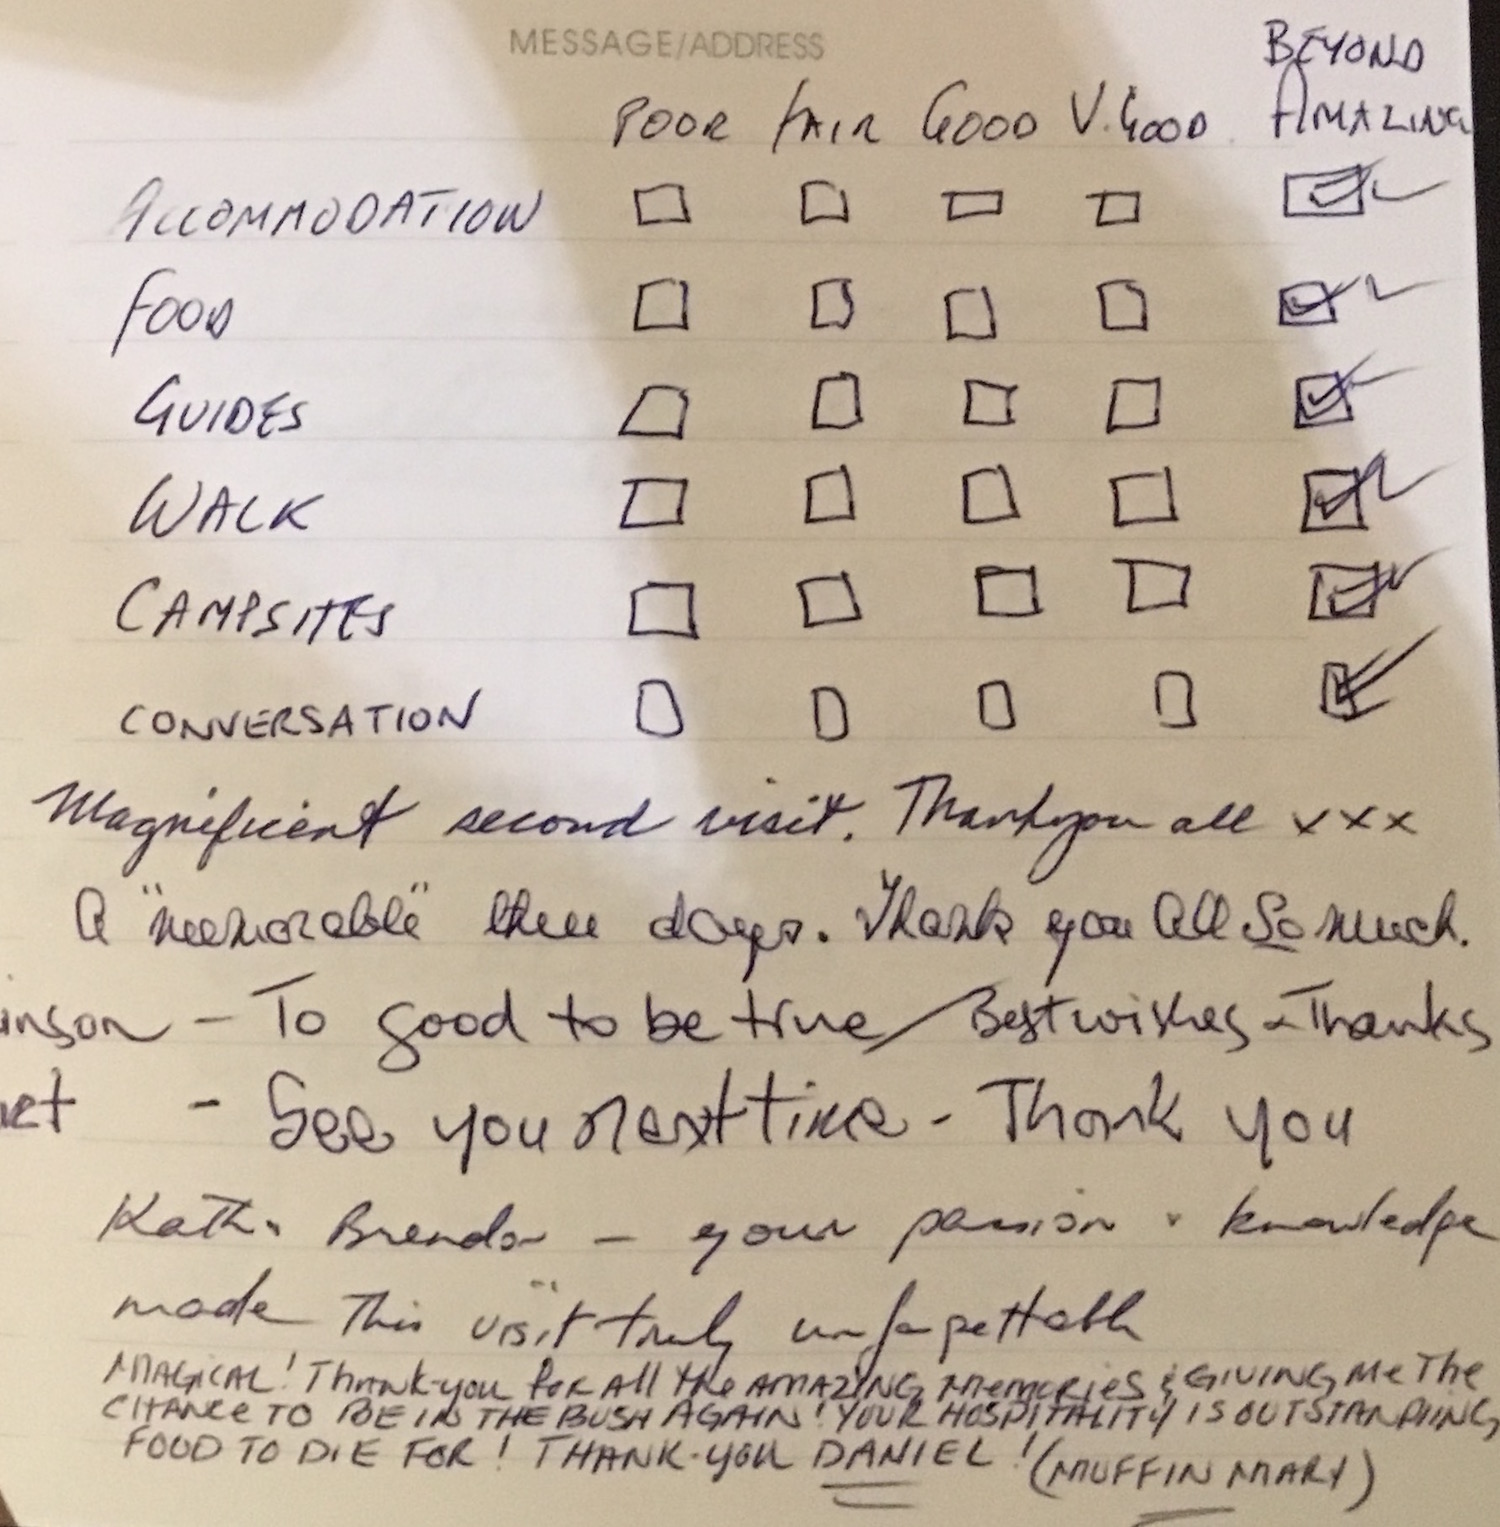 MESSAGE/ADDRESS
BEYOND
POOR FAIR GOOD V. GOOD AMAZING
ACCOMMODATION
FOOD
GUIDES
WALK
CAMPSITES
CONVERSATION
Magnificent second visit. Thankyou all xxx
A "memorable" three days. Thank you all So much.
inson - To good to be true / Best wishes - Thanks
net - See you next time - Thank you
Kath. Brendon - your passion + knowledge
made This visit truly unforgettable
MAGICAL! Thank-you for All the AMAZING Memories & GIVING Me The
CHANCE TO BE IN THE BUSH AGAIN! YOUR HOSPITALITY IS OUTSTANDING,
FOOD TO DIE FOR! THANK-YOU DANIEL! (MUFFIN MARY)